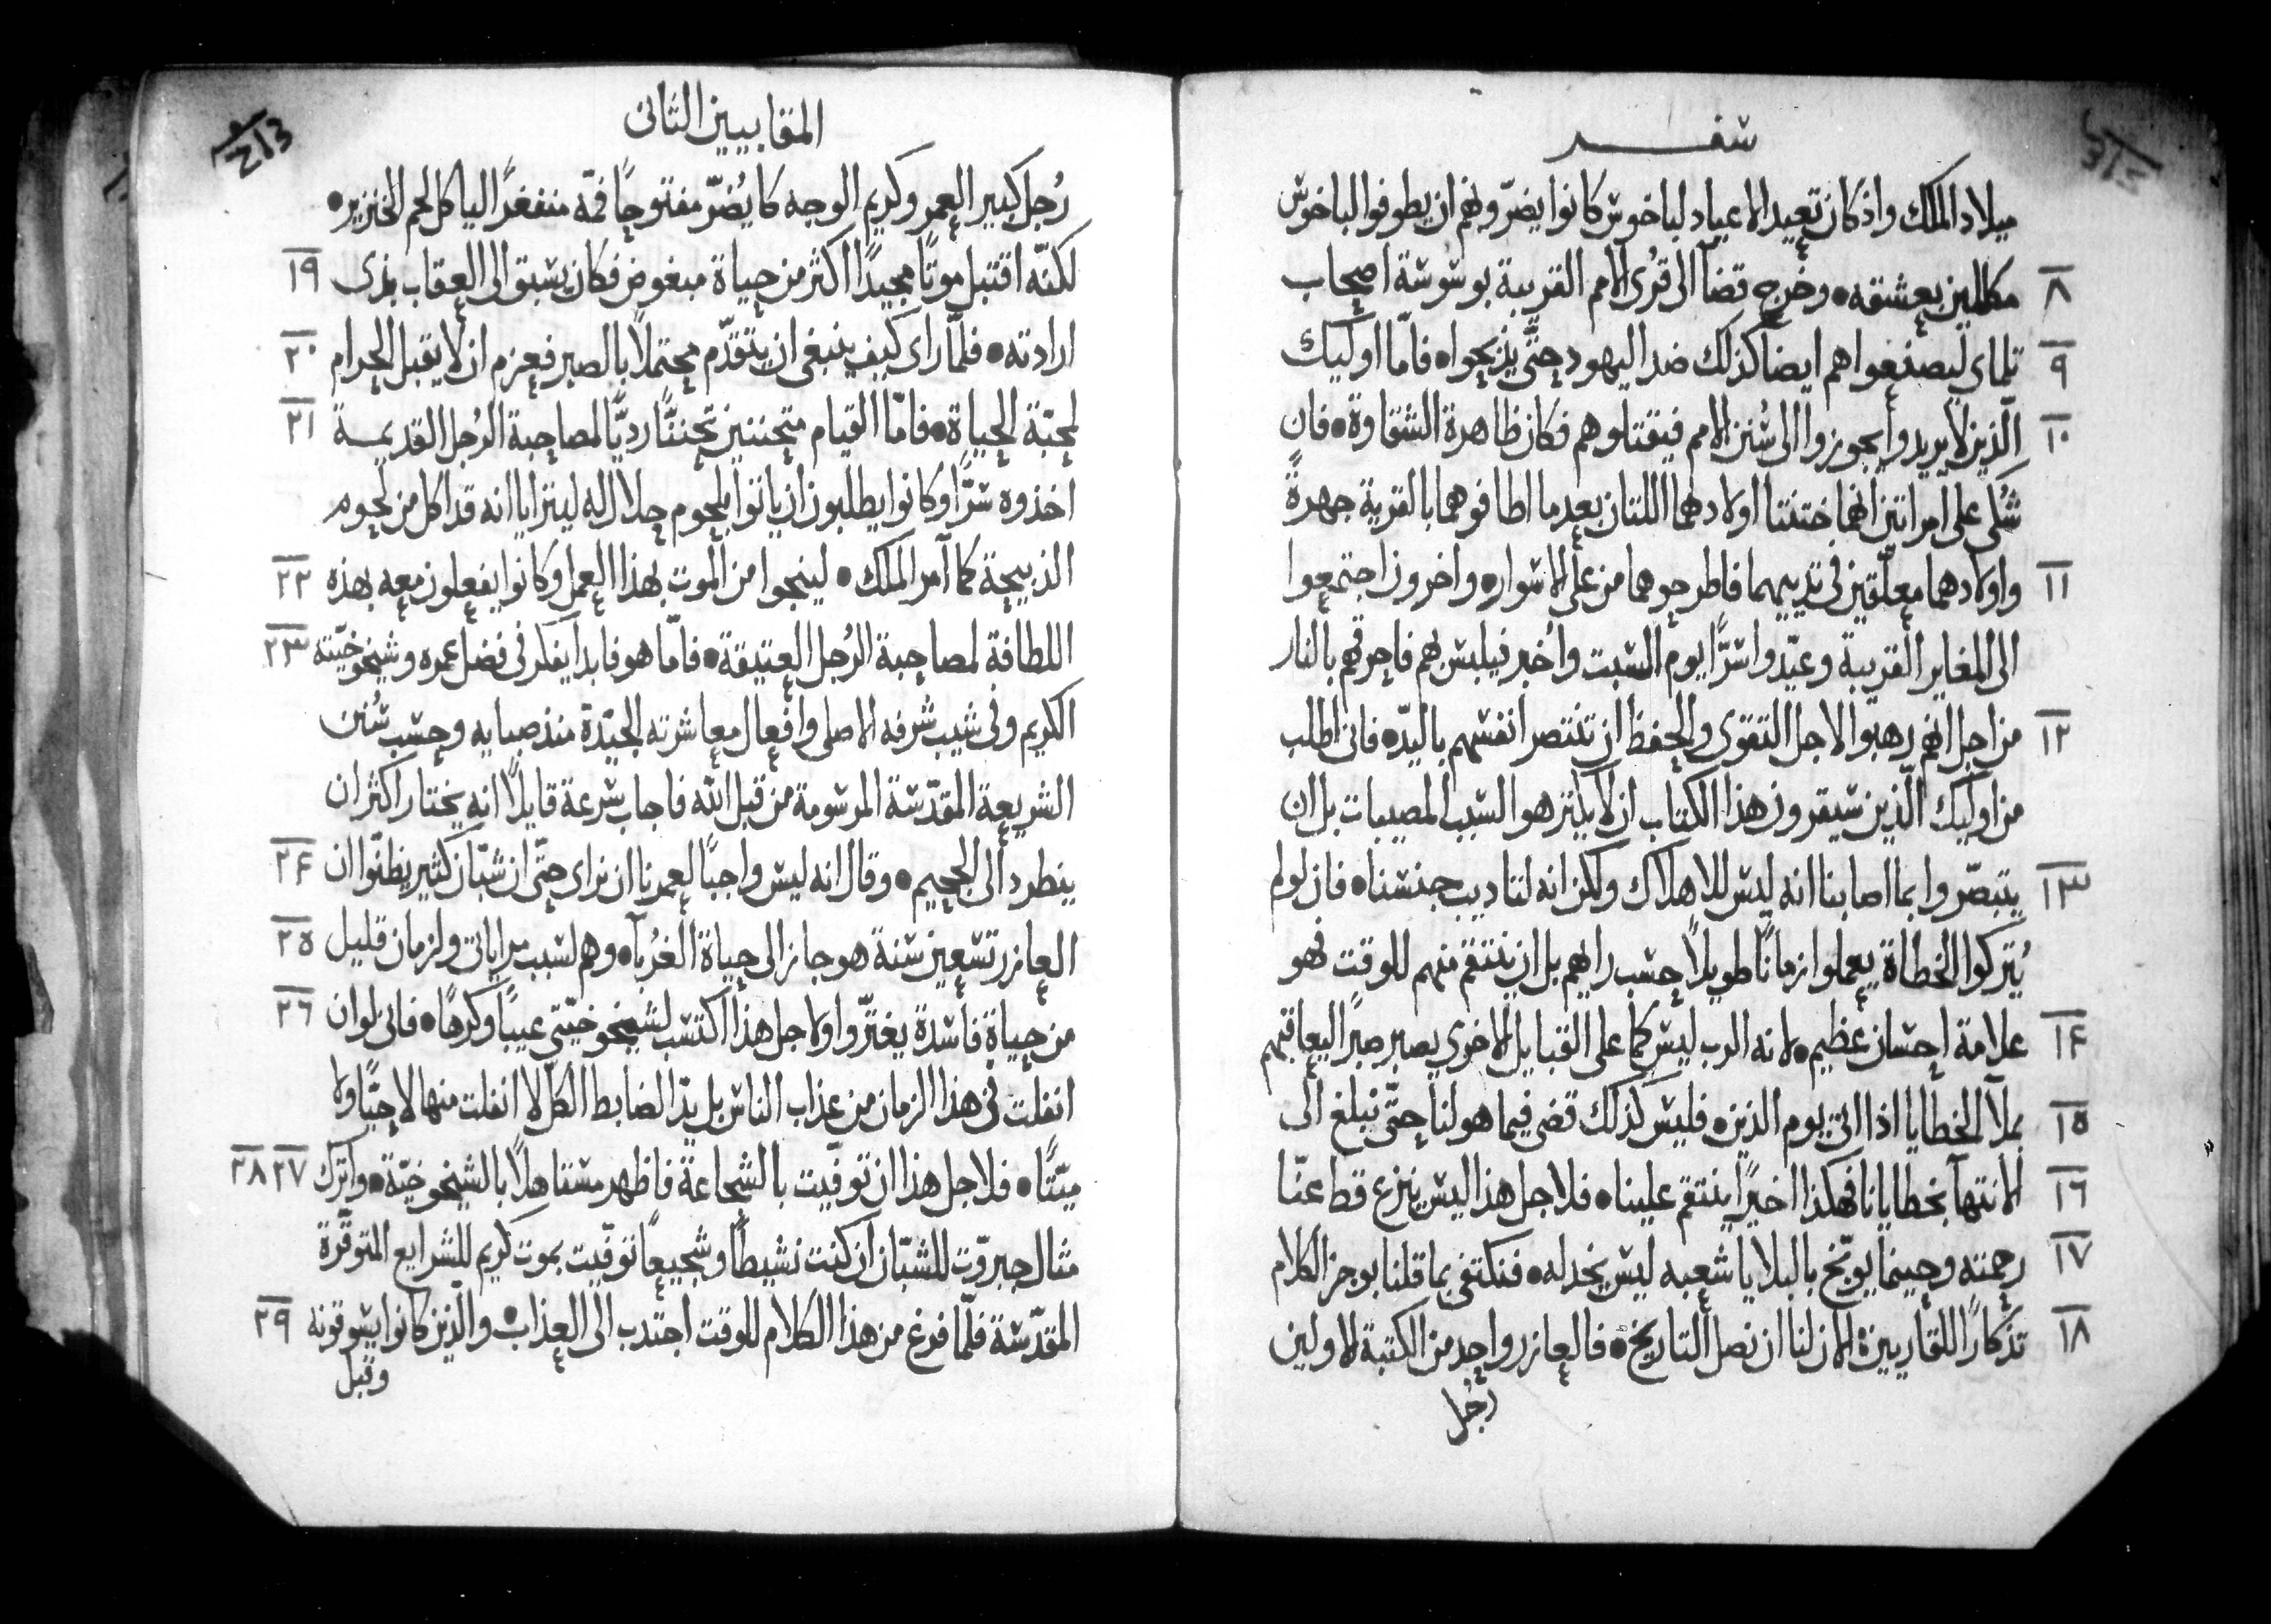 سفر
ميلاد الملك واذ كان تعييد الاعياد لباخوس كانوا يضرّونهم ان يطوفوا لباخوس
٨ مكللين بعشقه ٠ وخرج قضآ الى قرى الامم القريبة بوسوسة اصحاب
٩ تلماى ليصنعوا هم ايضا كذلك ضد اليهود حتّى يذبحوا ٠ فامّا اوليك
١٠ الّذين لا يريدوا يجوزوا الى سُنن الامم فيقتلوهم فكان ظاهرة الشقاوة ٠ فان
شُكى على امراتين انهما ختنتا اولادهما اللتان بعد ما اطافوهما بالقرية جهرةً
١١ واولادهما معلّقين فى ثدييهما فاطرحوهما من على الاسوار ٠ واخرون اجتمعوا
الى المغاير القريبة وعيّدوا سرًّا يوم السبت واُخبر فيلبس بهم فاحرقهم بالنار
١٢ من اجل انهم رهبوا لاجل التقوى والحفظ ان تنتصر انفسهم باليدّ ٠ فانى اطلب
من اوليك الّذين سيقرون هذا الكتاب ان لا يكترهوا لسبب المصيبات بل ان
١٣ يتبصّروا بما اصابنا انه ليس للاهلاك ولكن انه لتاديب جنسنا ٠ فان لو لم
يُتركوا الخطاة يعملوا زمانًا طويلًا حسب رايهم بل ان ينتقم منهم للوقت فهو
١٤ علامة احسان عظيم ٠ لانه الرب ليس كما على القبايل الاخرى يصبر صبرًا ليعاقبهم
١٥ بملآ الخطايا اذا اتى يوم الدين ٠ فليس كذلك قضى فيما هو لنا حتّى نبلغ الى
١٦ الانتهآ بخطايانا فهكذا اخيرًا ينتقم علينا ٠ فلاجل هذا ليس ينزع قط عنّا
١٧ رحمته وحينما يوبّخ بالبلايا شعبه ليس يخدله ٠ فنكتفى بما قلنا بوجز الكلام
١٨ تذكارًا للقاريين الان لنا ان نصل التاريخ ٠ فالعازر واحد من الكتبة الاولين
رُجل
المقابيين الثانى
رُجل كبير العمر وكريم الوجه كا يُضرّ مفتوحًا فمّه منفغرًا لياكل لحم الخنزير ٠
١٩ لكنّه اقتبل موتًا مجيدًا اكثر من حياة مبغوض فكان يسبق الى العقاب بذى
٢٠ ارادته ٠ فلمّا راى كيف ينبغى ان يتقدّم محتملًا بالصبر فعزم ان لا يقبل الحرام
٢١ لمحبّة الحياة ٠ فامّا القيام متحننين تحننًّا رديًّا لمصاحبة الرُجل القديمـة
اخذوه سرًّا وكانوا يطلبون ان ياتوا بلحوم حلال له ليتزايا انه قد اكل من لحوم
٢٢ الذبيحة كما آمر الملك ٠ لينجوا من الموت بهذا العمل وكانوا يفعلون معه بهذه
٢٣ اللطافة لمصاحبة الرُجل العتيقة ٠ فامّا هو فابدا يفكر فى فضل عمره وشيخوخيّته
الكريم وفى شيب شرفه الاصلى وافعال معاشرته الجيّدة منذ صبايه وحسب سُنن
الشريعة المقدّسة المرسومة من قبل الله فاجاب بسرعة قايلًا انه يختار اكثر ان
٢٤ ينطرد الى الجحيم ٠ وقال انه ليس واجبًا لعمرنا ان نراى حتّى ان شبّان كثير يظنّوا ان
٢٥ العازر تسعين سنة هو جاز الى حياة الغُربآ ٠ وهم لسبب مراياتى ولزمان قليل
٢٦ من حياة فاسدة يغترّوا ولاجل هذا اكتسب لشيخوخيّتى عيبًا وكرهًا ٠ فانى لو ان
انفلت فى هذا الزمان من عذاب الناس بل يدّ الضابط الكلّ لا انفلت منها لا حيًّا ولا
٢٧ ٢٨ ميّتًا ٠ فلاجل هذا ان توفّيت بالشجاعة فاظهر مستاهلًا بالشيخوخيّة ٠ واترك
مثال جبروّت للشبّان ان كنت نشيطًا وشجيعًا توفّيت بموت كريم للشرايع المتوقّرة
٢٩ المقدّسة فلمّا فرغ من هذا الكلام للوقت اجتدب الى العذاب ٠ والّذين كانوا يسوقونه
وقبل